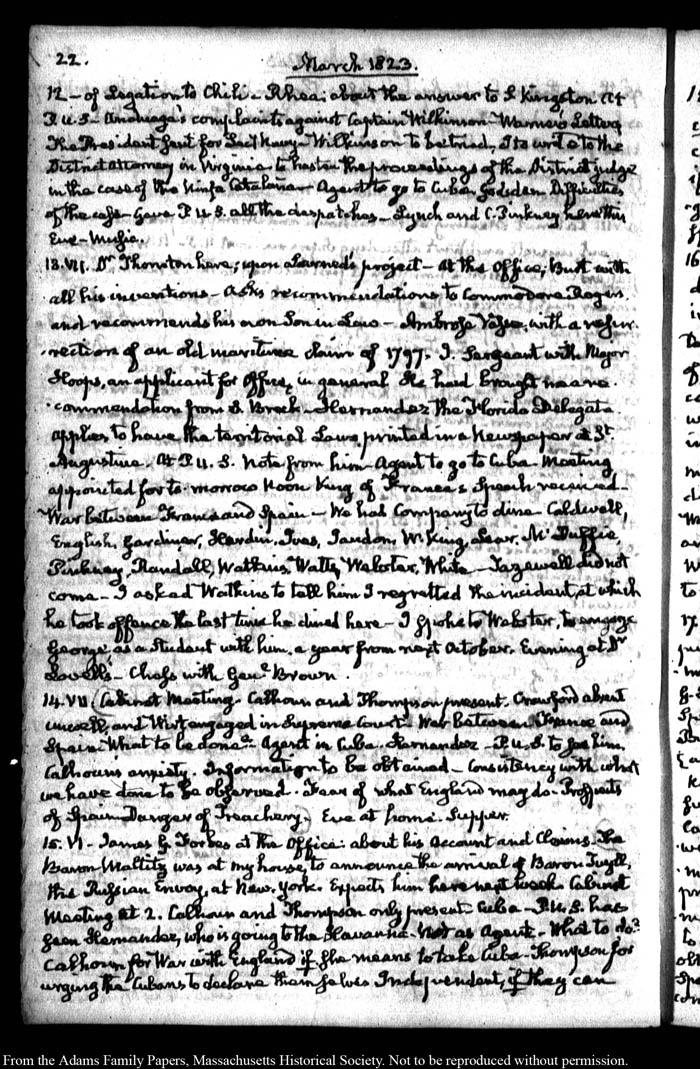 22.
March 1823.
12 – of Legation to Chili – Rhea; about the answer to S Kingston At
P. U. S – Anduaga's complaints against Captain Wilkinson – Warner's Letter,
The President sent for Secy Navy – Wilkinson to be tried, I to write to the
District attorney in Virginia to hasten the proceedings of the District judge
in the case of the Ninfa Catalana – Agent to go to Cuba. Gadsden Difficulties
of the case – Gave P. U. S. all the despatches – Lynch and C. Pinkney here this
Eve – Music.
13. VII. Dr. Thornton here; upon project – At the Office; Burt with
all his inventions – Asks recommendations to Commodore Rogers,
and recommends his own Son in Law – Ambrose Vasse, with a resur-
rection of an old maritime claim of 1797. J. Sergeant with Major
Hoops, an applicant for Office, in general He had brought me a re-
commendation from Brock – Hernandez the Florida Delegate
applies to have the territorial Laws printed in a Newspaper at St.
Augustine. At P. U. S. Note from him – Agent to go to Cuba – Meeting
appointed for to-morrow Noon King of France's Speech received –
War between France and Spain – We had Company to dine – Caldwell,
English, Gardiner, Hardin, Ives, Jaudon, W. King, Lear, McDuffie,
Pinkney, Randall, Watkins, Watts, Webster, White – Tazewell did not
come – I asked Watkins to tell him I regretted the incident, at which
he took offence the last time he dined here – I spoke to Webster, to engage
George, as a Student with him, a year from next October. Evening at Dr
Lovell's – Chess with Genl Brown.
14. VII Cabinet Meeting – Calhoun and Thompson present. Crawford absent
unwell, and Wirt engaged in Supreme Court – War between France and
Spain. What to be done? Agent in Cuba. Hernandez – P. U. S. to see him.
Calhoun's anxiety. Information to be obtained – Consistency with what
we have done to be observed. Fear of what England may do – Prospects
of Spain – Danger of Treachery – Eve at home. Supper.
15. VI – James G. Forbes at the Office: about his Account and Claims – The
Baron Maltitz was at my house, to announce the arrival of Baron Tuyll,
the Russian Envoy, at New-York. Expects him here next week Cabinet
Meeting at 2. Calhoun and Thompson only present – Cuba – P. U. S. has
seen Hernandez, who is going to the Havanna – Not as Agent – What to do?
Calhoun for War with England if She means to take Cuba – Thompson for
urging the Cubans to declare themselves Independent, if they can
From the Adams Family Papers, Massachusetts Historical Society. Not to be reproduced without permission.